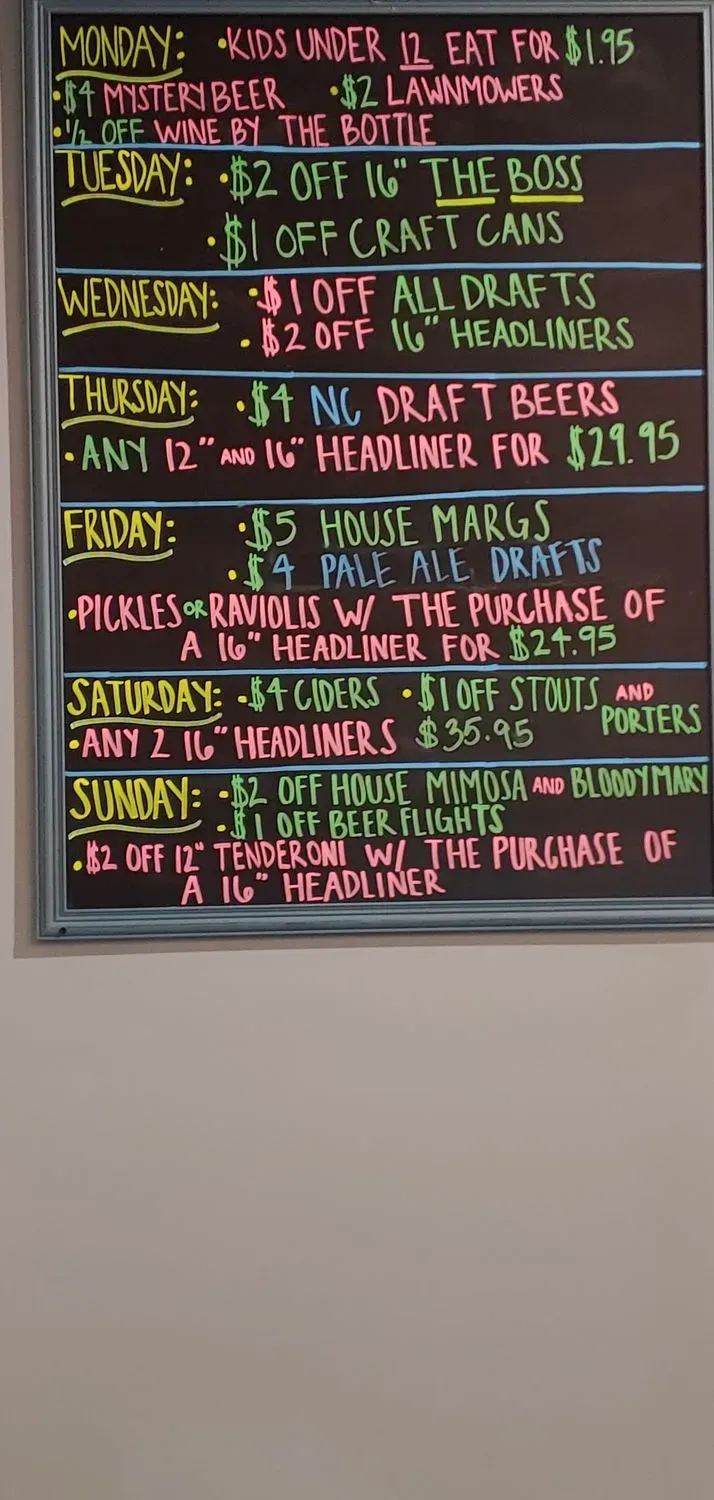 MONDAY: •KIDS UNDER 12 EAT FOR $1.95
•$4 MYSTERY BEER •$2 LAWNMOWERS
•1/2 OFF WINE BY THE BOTTLE
TUESDAY: •$2 OFF 16" THE BOSS
•$1 OFF CRAFT CANS
WEDNESDAY: •$1 OFF ALL DRAFTS
•$2 OFF 16" HEADLINERS
THURSDAY: •$4 NC DRAFT BEERS
•ANY 12" AND 16" HEADLINER FOR $29.95
FRIDAY: •$5 HOUSE MARGS
•$4 PALE ALE DRAFTS
•PICKLES OR RAVIOLIS W/ THE PURCHASE OF
A 16" HEADLINER FOR $24.95
SATURDAY: •$4 CIDERS •$1 OFF STOUTS AND
PORTERS
•ANY 2 16" HEADLINERS $35.95
SUNDAY: •$2 OFF HOUSE MIMOSA AND BLOODY MARY
•$1 OFF BEER FLIGHTS
•$2 OFF 12" TENDERONI W/ THE PURCHASE OF
A 16" HEADLINER